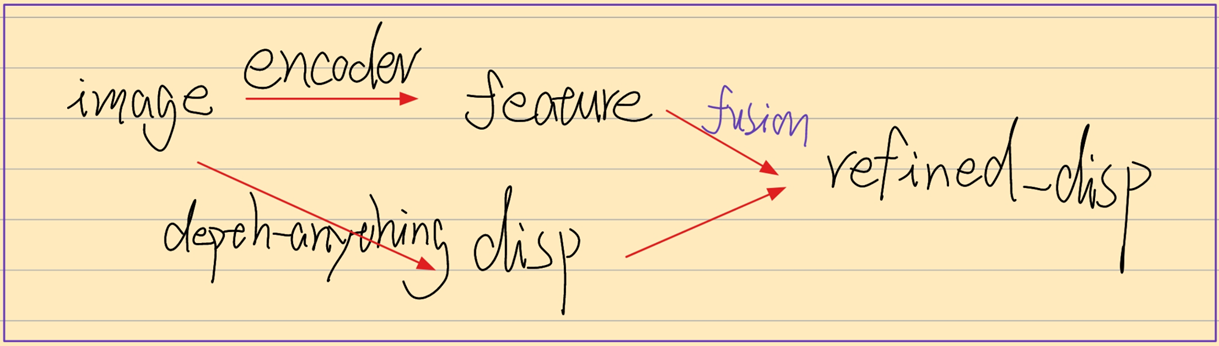 image encoder feature fusion
refined_disp
depth-anything disp